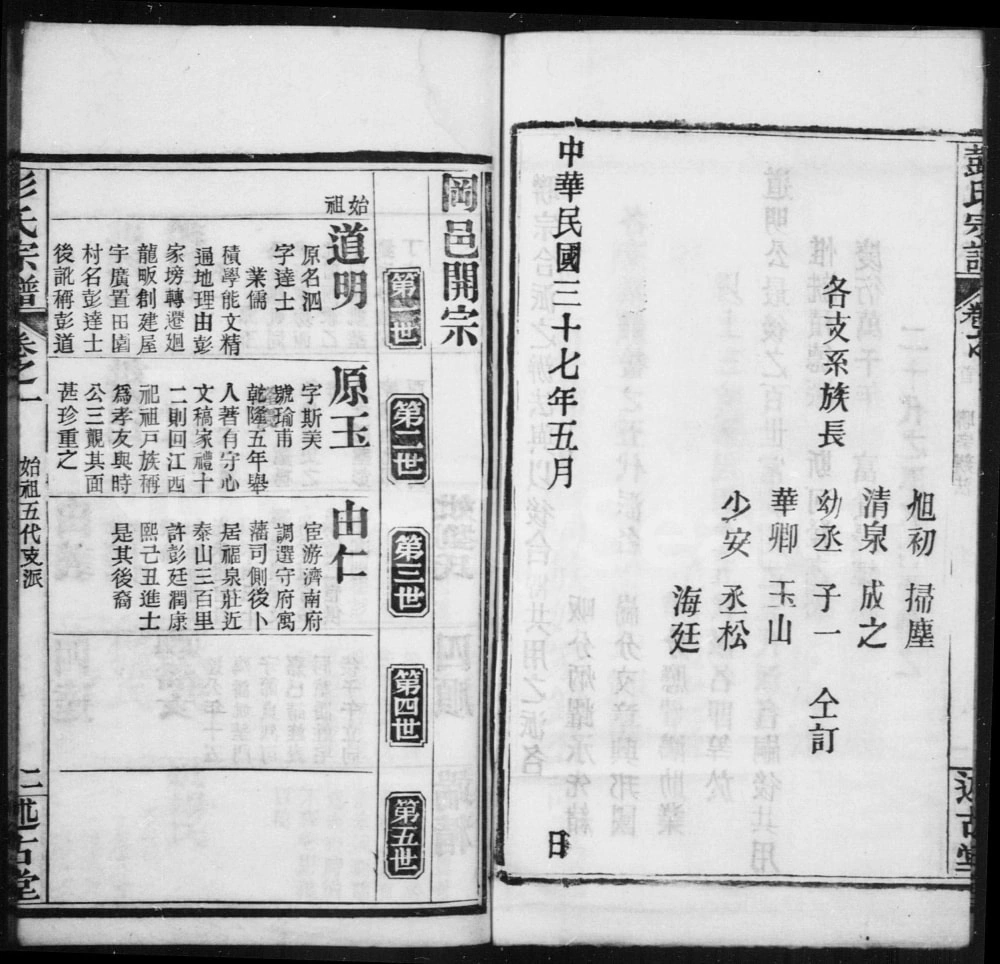 彭氏宗譜
卷首
述古堂
各支系族長
旭初 掃塵
清泉 成之
幼丞 子一 仝訂
華卿 玉山
少安 丞松
海廷
中華民國三十七年五月 日
岡邑開宗
第一世
第二世
第三世
第四世
第五世
始祖
道明
原名泗
字達士
業儒
積學能文精
通地理由彭
家塝轉遷廻
龍畈創建屋
宇廣置田園
村名彭達士
後訛稱彭道
原玉
字斯美
號瑜甫
乾隆五年舉
人著有守心
文稿家禮十
二則回江西
祀祖戶族稱
爲孝友與時
公三覯其面
甚珍重之
由仁
宦游濟南府
調選守府寓
藩司側後卜
居福泉莊近
泰山三百里
許彭廷潤康
熙己丑進士
是其後裔
彭氏宗譜
卷之一
始祖五代支派
二
述古堂